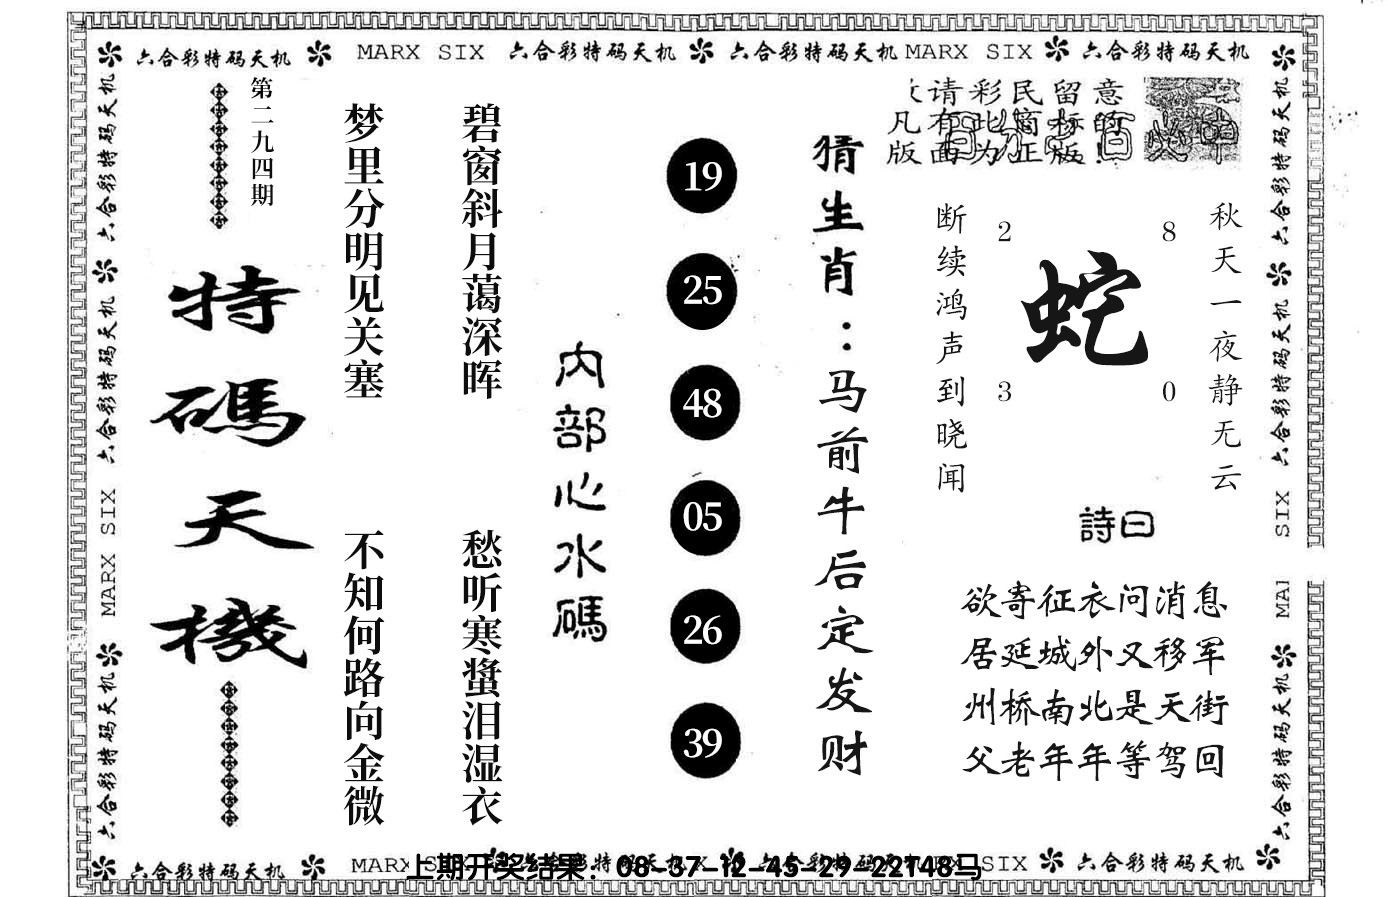 六合彩特码天机 MARX SIX 六合彩特码天机 六合彩特码天机 MARX SIX 六合彩特码天机
第二九四期
特碼天機
碧窗斜月蔼深晖
愁听寒螀泪湿衣
梦里分明见关塞
不知何路向金微
内部心水碼
19
25
48
05
26
39
猜生肖：马前牛后定发财
请彩民留意
凡有此商标的
版面为正版!
秋天一夜静无云
断续鸿声到晓闻
2 8
蛇
3 0
詩曰
欲寄征衣问消息
居延城外又移军
州桥南北是天街
父老年年等驾回
六合彩特码天机
六合彩特码天机
MARX SIX
六合彩特码天机
六合彩特码天机
六合彩特码天机
SIX
六合彩特码天机
六合彩特码天机 MARX SIX 六合彩特码天机
上期开奖结果：08-37-12-45-29-22T48马